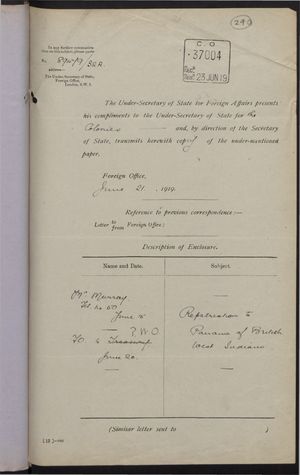 290
C. O.
37004
Rec^D
Reg^D 23 JUN 19
In any further communication
on this subject, please quote
No.
address—
The Under-Secretary of State,
Foreign Office,
London, S.W. 1.
The Under-Secretary of State for Foreign Affairs presents
his compliments to the Under-Secretary of State for the
Colonies and, by direction of the Secretary
of State, transmits herewith copy of the under-mentioned
paper.
Foreign Office,
June 21, 1919.
Reference to previous correspondence :—
Letter to from Foreign Office :
Description of Enclosure.
Name and Date.
Subject.
Mr Murray
Tel. No 50
June 5
P.W.O.
F.O. to Treasury
June 20.
Repatriation to
Panama of British
West Indians
(Similar letter sent to )